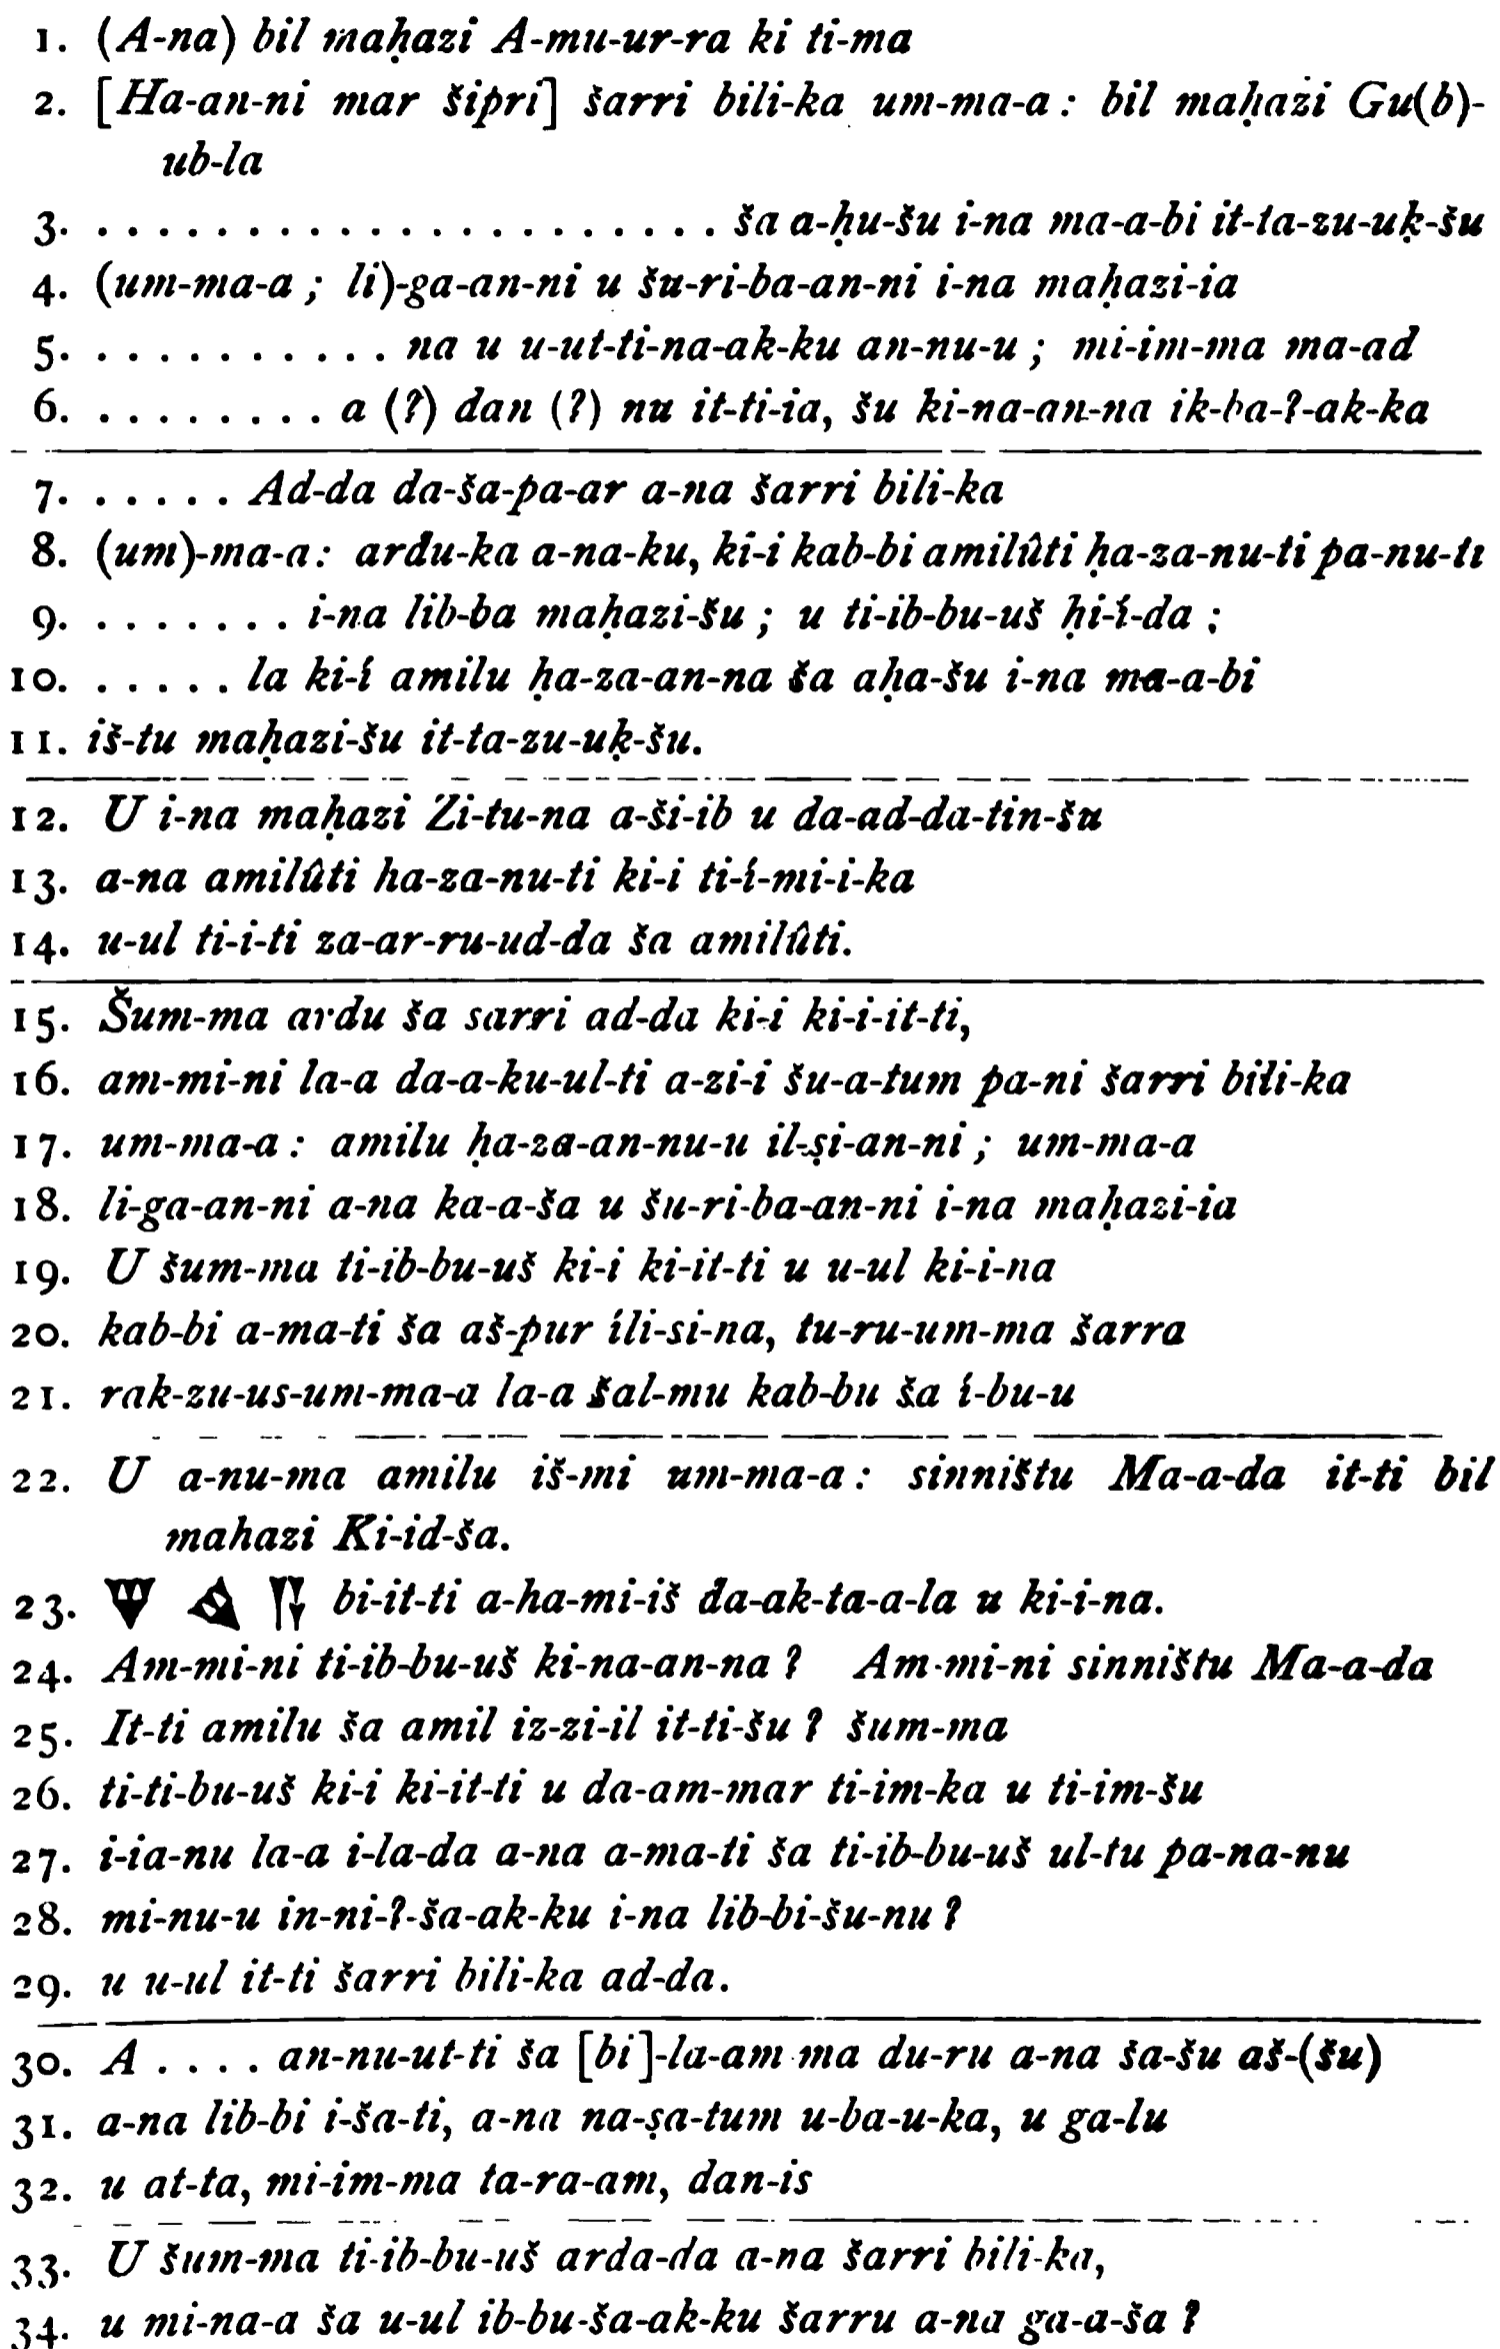 1. (A-na) bil maḥazi A-mu-ur-ra ki ti-ma
2. [Ha-an-ni mar šipri] šarri bili-ka um-ma-a : bil maḥazi Gu(b)-
ub-la
3. . . . . . . . . . . . . . . . . . . . . . . ša a-ḥu-šu i-na ma-a-bi it-ta-zu-uḳ-šu
4. (um-ma-a ; li)-ga-an-ni u šu-ri-ba-an-ni i-na maḥazi-ia
5. . . . . . . . . . . . na u u-ut-ti-na-ak-ku an-nu-u ; mi-im-ma ma-ad
6. . . . . . . . . a (?) dan (?) nu it-ti-ia, šu ki-na-an-na ik-ba-?-ak-ka
7. . . . . . Ad-da da-ša-pa-ar a-na šarri bili-ka
8. (um)-ma-a : ardu-ka a-na-ku, ki-i kab-bi amilûti ḥa-za-nu-ti pa-nu-ti
9. . . . . . . . i-na lib-ba maḥazi-šu ; u ti-ib-bu-uš ḥi-í-da ;
10. . . . . . la ki-í amilu ḥa-za-an-na ša aḥa-šu i-na ma-a-bi
11. iš-tu maḥazi-šu it-ta-zu-uḳ-šu.
12. U i-na maḥazi Zi-tu-na a-ši-ib u da-ad-da-tin-šu
13. a-na amilûti ha-za-nu-ti ki-i ti-í-mi-i-ka
14. u-ul ti-i-ti za-ar-ru-ud-da ša amilûti.
15. Šum-ma ardu ša sarri ad-da ki-i ki-i-it-ti,
16. am-mi-ni la-a da-a-ku-ul-ti a-zi-i šu-a-tum pa-ni šarri bili-ka
17. um-ma-a : amilu ḥa-za-an-nu-u il-ṣi-an-ni ; um-ma-a
18. li-ga-an-ni a-na ka-a-ša u šu-ri-ba-an-ni i-na maḥazi-ia
19. U šum-ma ti-ib-bu-uš ki-i ki-it-ti u u-ul ki-i-na
20. kab-bi a-ma-ti ša aš-pur íli-si-na, tu-ru-um-ma šarra
21. rak-zu-us-um-ma-a la-a šal-mu kab-bu ša í-bu-u
22. U a-nu-ma amilu iš-mi um-ma-a : sinništu Ma-a-da it-ti bil
mahazi Ki-id-ša.
23. bi-it-ti a-ha-mi-iš da-ak-ta-a-la u ki-i-na.
24. Am-mi-ni ti-ib-bu-uš ki-na-an-na ? Am-mi-ni sinništu Ma-a-da
25. It-ti amilu ša amil iz-zi-il it-ti-šu ? šum-ma
26. ti-ti-bu-uš ki-i ki-it-ti u da-am-mar ti-im-ka u ti-im-šu
27. i-ia-nu la-a i-la-da a-na a-ma-ti ša ti-ib-bu-uš ul-tu pa-na-nu
28. mi-nu-u in-ni-?-ša-ak-ku i-na lib-bi-šu-nu ?
29. u u-ul it-ti šarri bili-ka ad-da.
30. A . . . . an-nu-ut-ti ša [bi]-la-am-ma du-ru a-na ša-šu aš-(šu)
31. a-na lib-bi i-ša-ti, a-na na-ṣa-tum u-ba-u-ka, u ga-lu
32. u at-ta, mi-im-ma ta-ra-am, dan-is
33. U šum-ma ti-ib-bu-uš arda-da a-na šarri bili-ka,
34. u mi-na-a ša u-ul ib-bu-ša-ak-ku šarru a-na ga-a-ša ?